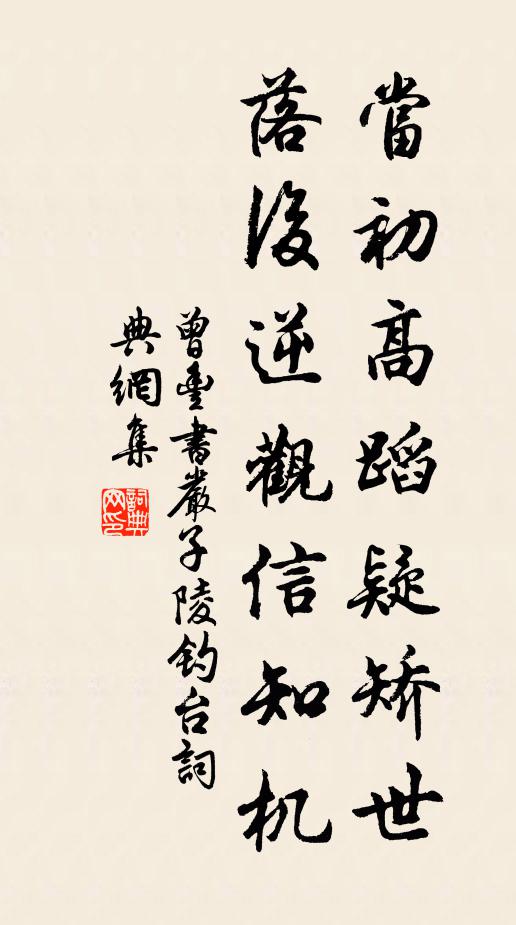 當初高蹈疑矯世
落後逆觀信知机
曾豐書嚴子陵釣台詞
典網集
詞典网印